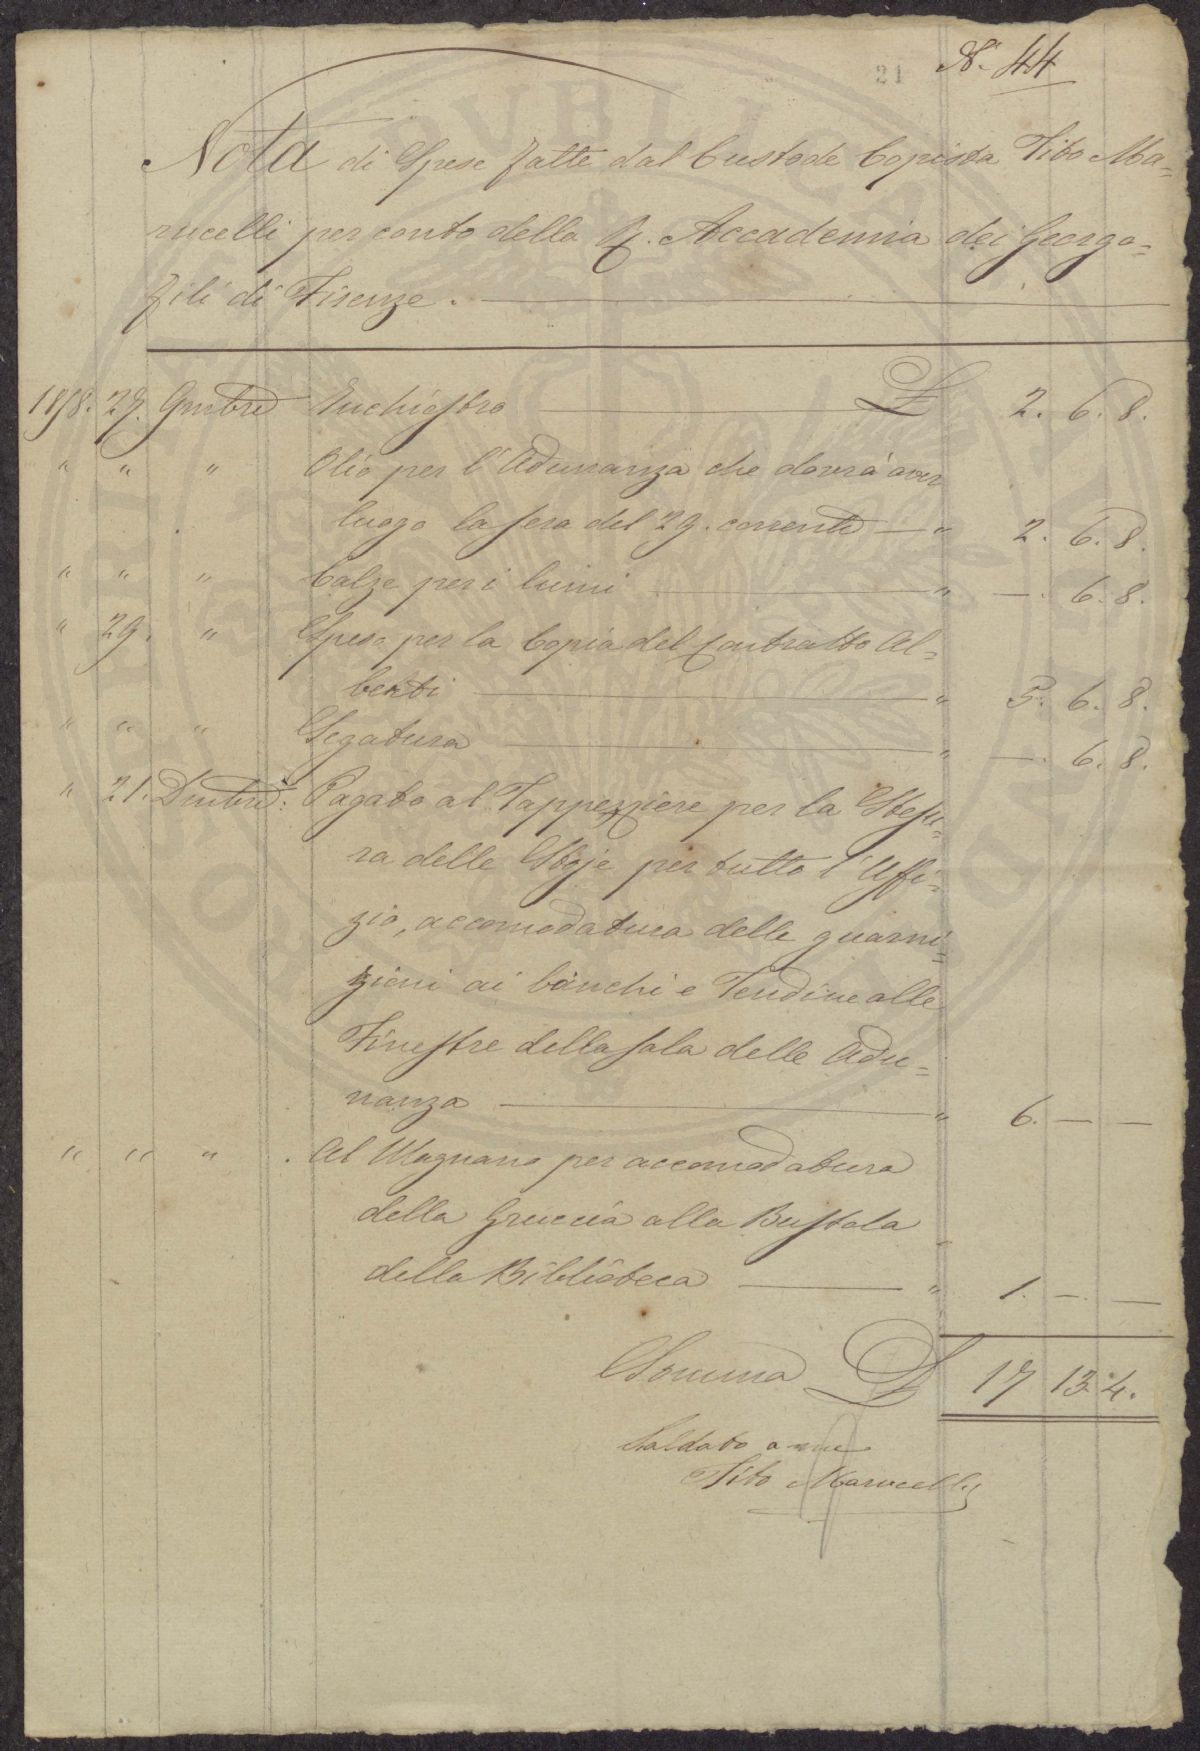 21 N.° 44
Nota di Spese fatte dal Custode Copista Tito Ma=
rucelli per conto della R. Accademia dei Georgo=
fili di Firenze.
1858. 27. 9mbre Inchiostro £ 2. 6. 8.
" " " Olio per l'Adunanza che dovrà aver
luogo la sera del 29. corrente " 2. 6. 8.
" " " Calze per i lumi " —. 6. 8.
" 29. " Spesa per la Copia del Contratto Al=
berti " 5. 6. 8.
" " " Segatura " —. 6. 8.
" 21. Dmbre: Pagato al Tappezziere per la Stesu=
ra delle Stoje per tutto l'Uffi=
zio, accomodatura delle guarni=
zioni ai banchi e Tendine alle
Finestre della sala delle Adu=
nanza " 6. — —
" " " Al Magnano per accomodatura
della Gruccia alla Bussola
della Biblioteca " 1. — —
Somma £ 17 13. 4.
Saldato a me
Tito Marucelli